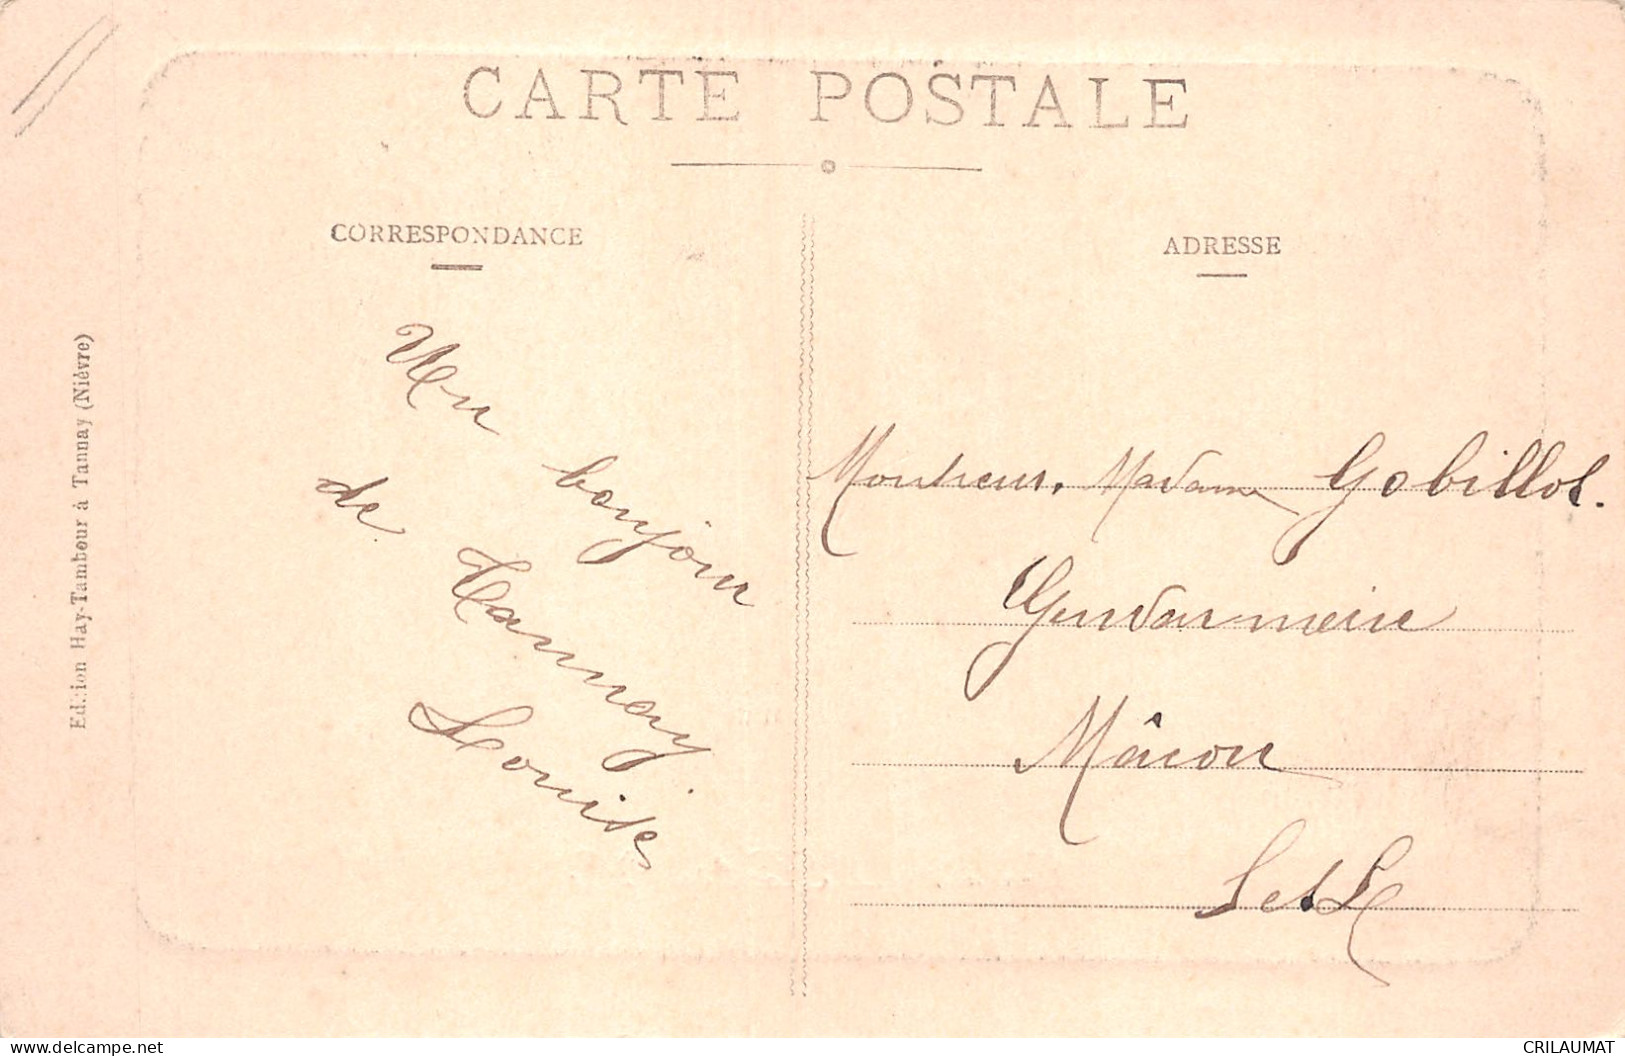 CARTE POSTALE
CORRESPONDANCE
ADRESSE
Edition Hay-Tambour à Tannay (Nièvre)
Un bonjour
de Tannay
Louise
Monsieur, Madame Gobillot.
Gendarmerie
Mâcon
S et L
www.delcampe.net
CRILAUMAT